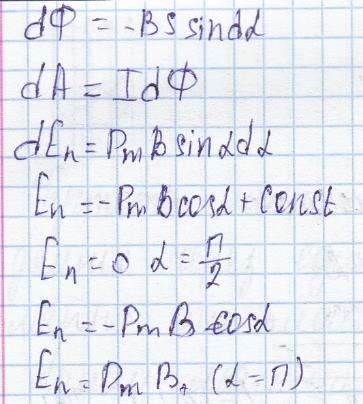 dФ = -BS sindα
dA = IdФ
dEп = PmB sinαdα
Eп = -PmBcosα + const
Eп = 0 α = π/2
Eп = -PmB cosα
Eп = PmB, (α = π)